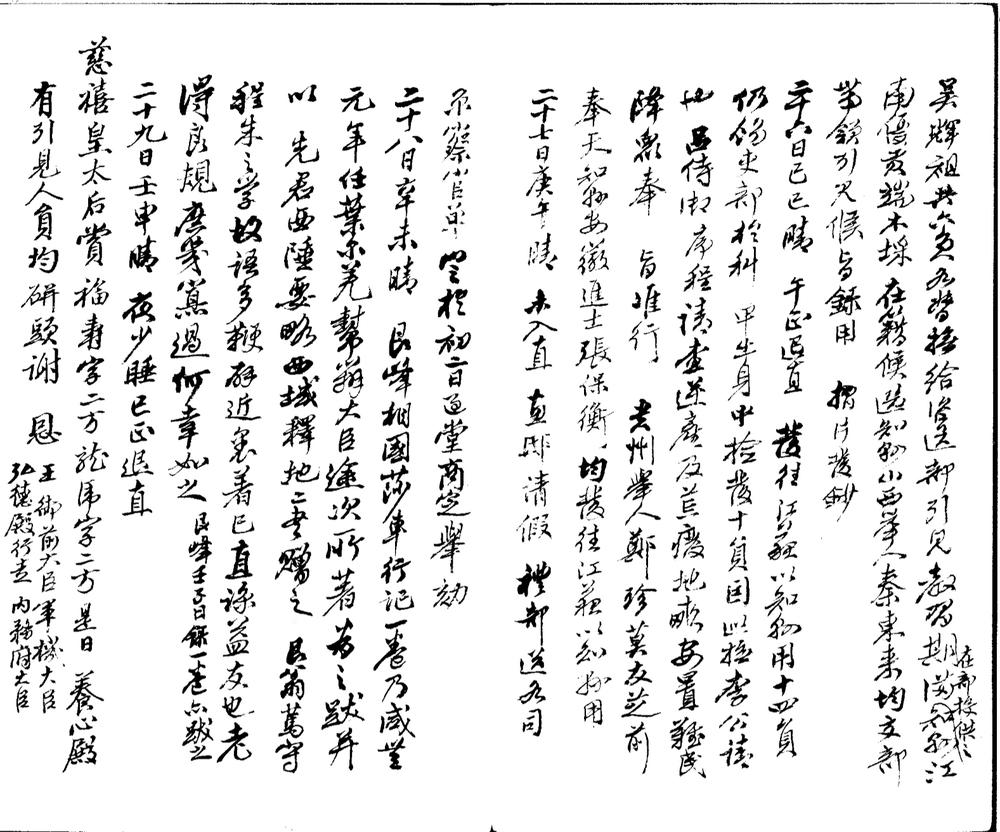 吳輝祖共六員各督撫給咨送部引見教習期滿知縣江
在部投供
南優貢端木埰 在籍候選知縣山西舉人秦東来均交部
帶領引見候 旨錄用 摺片發鈔
二十六日己巳晴 午正退直 發往江蘇以知縣用十四員
仍飭吏部於科甲出身中揀發十員因蘇撫李公請
也 呂侍御序程請查逆產及荒廢地畝安置難民
降衆奉 旨准行 貴州舉人鄭珍莫友芝前
奉天知縣安徽進士張保衡均發往江蘇以知縣用
二十七日庚午晴 未入直 直郎清假 禮部送各司
京察官單 定於初二日過堂商定舉劾
二十八日辛未晴 艮峰相國莎車行記一卷乃咸豐
元年任葉尔羌幫辦大臣途次所著 為之跋并
以 先君西陲要略西域釋地二書贈之 艮翁篤守
程朱之學故語多鞭辟近裏著己直諒益友也老
得良規庶幾寡過何幸如之
艮峰壬子日錄一卷亦跋之
二十九日壬申晴 夜少睡 巳正退直
慈禧皇太后賞福壽字二方龍虎字二方 是日 養心殿
有引見人員均碰頭謝 恩
王 御前大臣軍機大臣
弘德殿行走 内務府大臣